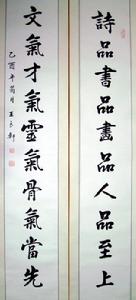 詩品書品畫品人品至上
文氣才氣靈氣骨氣當先
乙酉年菊月王玉軒